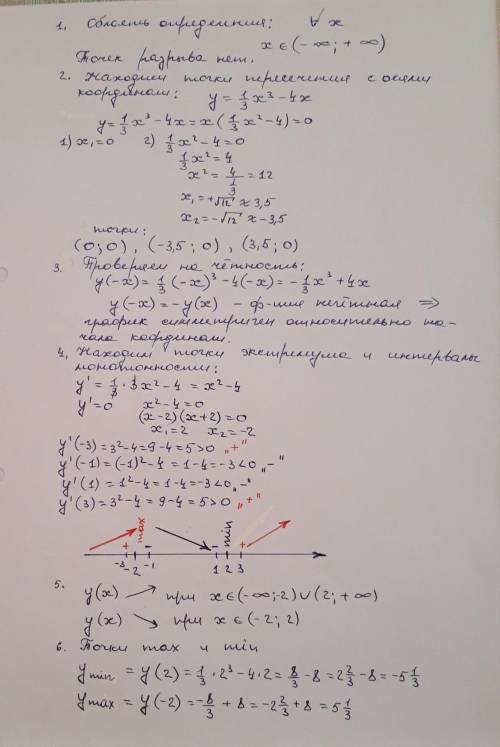 1. Область определения: ∀ x
x ∈ (-∞; +∞)
Точек разрыва нет.
2. Находим точки пересечения с осями
координат: y = 1/3 x³ - 4x
y = 1/3 x³ - 4x = x(1/3 x² - 4) = 0
1) x₁ = 0 2) 1/3 x² - 4 = 0
1/3 x² = 4
x² = 4/(1/3) = 12
x₁ = +√12 ≈ 3,5
x₂ = -√12 ≈ -3,5
точки:
(0; 0), (-3,5; 0), (3,5; 0)
3. Проверяем на чётность:
y(-x) = 1/3 (-x)³ - 4(-x) = -1/3 x³ + 4x
y(-x) = -y(x) - ф-ция нечётная ⇒
график симметричен относительно на-
чала координат.
4. Находим точки экстремума и интервалы
монотонности:
y' = 1/3 · 3x² - 4 = x² - 4
y' = 0 x² - 4 = 0
(x-2)(x+2) = 0
x₁ = 2 x₂ = -2
y'(-3) = 3² - 4 = 9 - 4 = 5 > 0 „+"
y'(-1) = (-1)² - 4 = 1 - 4 = -3 < 0 „-"
y'(1) = 1² - 4 = 1 - 4 = -3 < 0 „-"
y'(3) = 3² - 4 = 9 - 4 = 5 > 0 „+"
max min
+ - - +
-3 -2 -1 1 2 3
5. y(x) ↗ при x ∈ (-∞; -2) ∪ (2; +∞)
y(x) ↘ при x ∈ (-2; 2)
6. Точки max и min
y min = y(2) = 1/3 · 2³ - 4·2 = 8/3 - 8 = 2 2/3 - 8 = -5 1/3
y max = y(-2) = -8/3 + 8 = -2 2/3 + 8 = 5 1/3